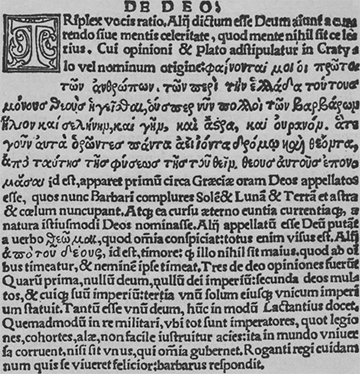 DE DEO
TRiplex vocis ratio. Alij dictum esse Deum aiunt a cur
rendo siue mentis celeritate, quod mente nihil sit cele
rius. Cui opinioni & Plato adstipulatur in Craty
lo vel nominum origine: φαίνονταί μοι οἱ πρῶτοι
τῶν ἀνθρώπων. τῶν περὶ τὴν ἑλλάδα τούτους
μόνους θεοὺς ἡγεῖσθαι, οὕσπερ νῦν πολλοὶ τῶν βαρβάρων
ἥλιον καὶ σελήνην, καὶ γῆν, καὶ ἄστρα, καὶ οὐρανόν. ἅτε
οὖν αὐτὰ ὁρῶντες πάντα ἀεὶ ἰόντα δρόμῳ καὶ θέοντα,
ἀπὸ ταύτης τῆς φύσεως τῆς τοῦ θεῖν, θεοὺς αὐτοὺς ἐπονο
μάσαι id est, apparet primũ circa Græciæ oram Deos appellatos
esse, quos nunc Barbari complures Solẽ & Lunã & Terrã et astra
& cœlum nuncupant. Atq; ea cursu æterno euntia currentiaq; a
natura istiusmodi Deos nominasse. Alij appellatũ esse Deũ putãt
a uerbo θεῶμαι, quod omĩa conspiciat: totus enim visus est. Alij
ἀπὸ τοῦ δέους, id est, timore: q̃ illo nihil sit maius, quod ab oĩ
bus timeatur, & neminẽ ipse timeat. Tres de deo opiniones fuerũt
Quarũ prima, nullũ deum, nullũ dei imperiũ: secunda deos mul
tos, & cuiq; suũ imperiũ: tertia vnũ solum eiusq; vnicum imperi
um statuit. Tantũ esse vnũ deum, hũc in modũ Lactantius docet.
Quemadmodũ in re militari, vbi tot sunt imperatores, quot legio
nes, cohortes, alæ, non facile iustruitur acies: ita in mundo vniuer
sa corruent, nisi sit vnus, qui omĩa gubernet. Roganti regi cuidam
num quis se viueret felicior: barbarus respondit.